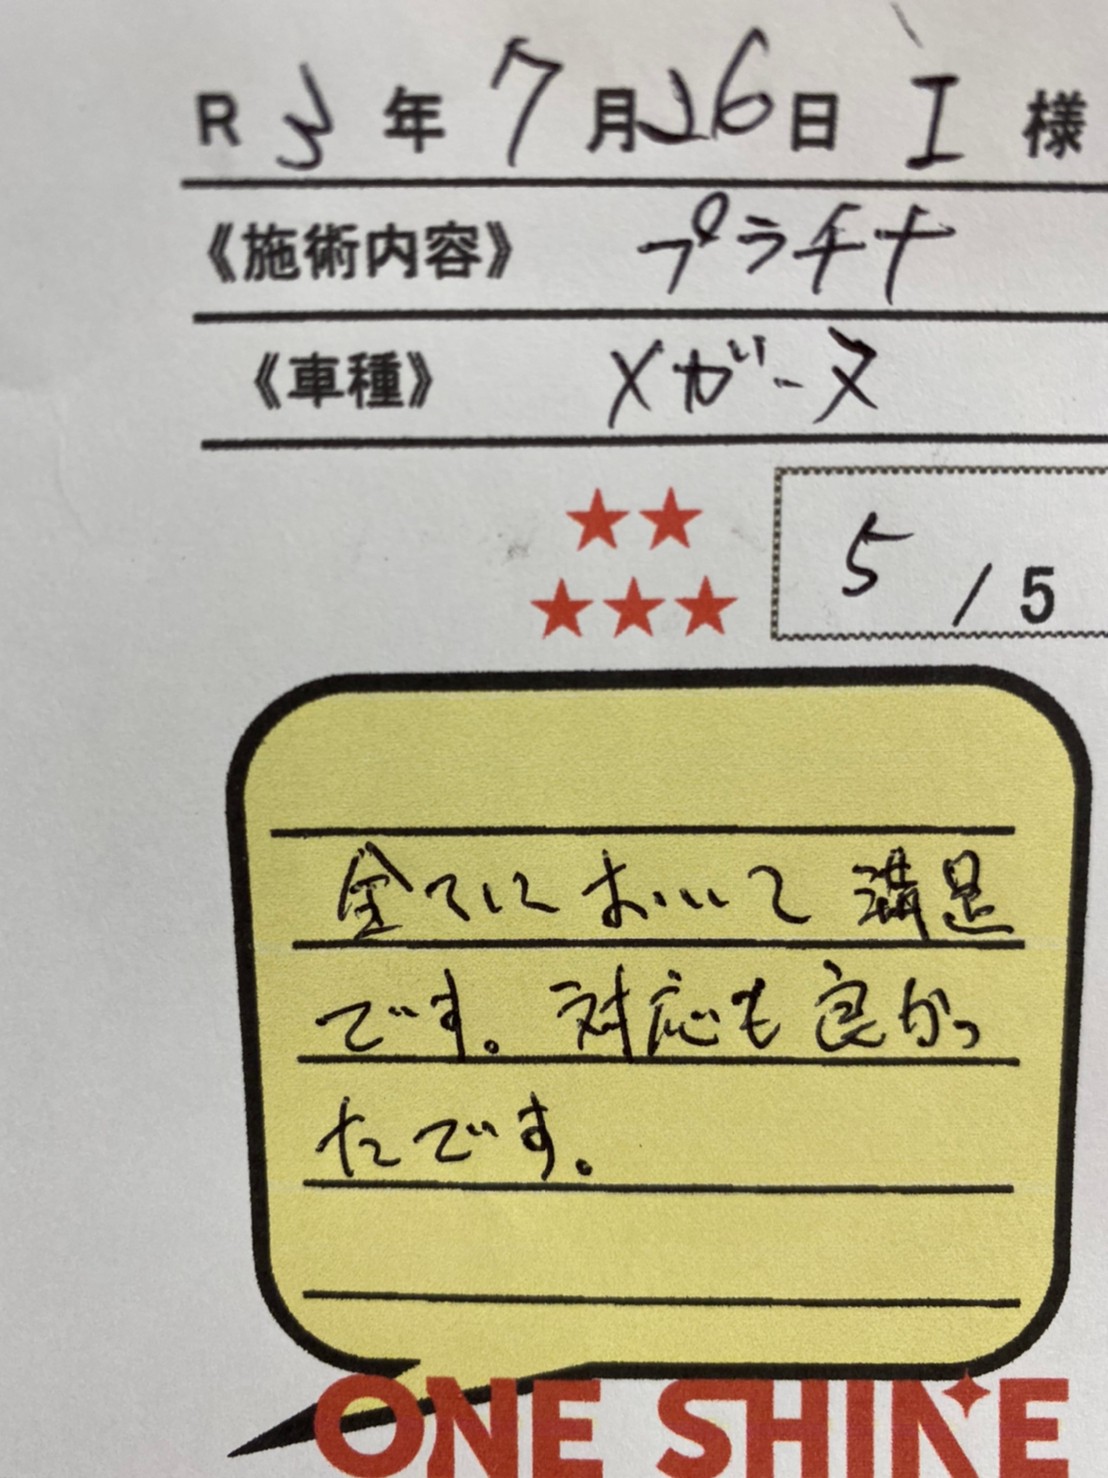 R 3 年 7 月 26 日 I 様
《施術内容》 プラチナ
《車種》 メガーヌ
5 / 5
全てにおいて 満足
です。対応も良かっ
たです。
ONE SHINE